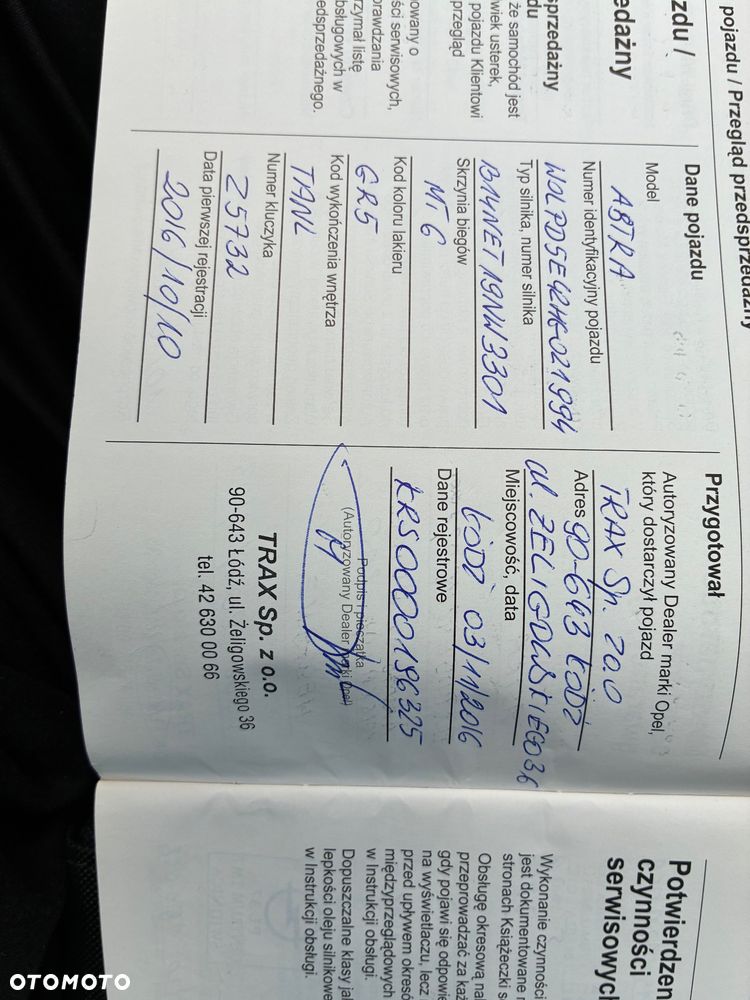 pojazdu / Przegląd przedsprzedażny
zdu /
edażny
sprzedażny
du
że samochód jest
wiek usterek,
pojazdu Klientowi
przegląd
owany o
rawdzania
ści serwisowych,
rzymał listę
bsługowych w
edsprzedażnego.
Dane pojazdu
Model
ASTRA
Numer identyfikacyjny pojazdu
W0LPD5E42HG021994
Typ silnika, numer silnika
B14NET19NW3301
Skrzynia biegów
MT6
Kod koloru lakieru
GR5
Kod wykończenia wnętrza
TANL
Numer kluczyka
Z5732
Data pierwszej rejestracji
2016/10/10
Przygotował
Autoryzowany Dealer marki Opel,
który dostarczył pojazd
TRAX Sp. zo.o
Adres 90-643 ŁÓDŹ
ul. ŻELIGOWSKIEGO 36
Miejscowość, data
ŁÓDŹ 03/11/2016
Dane rejestrowe
KRS0000196325
Podpis i pieczątka
(Autoryzowany Dealer marki Opel)
TRAX Sp. z o.o.
90-643 Łódź, ul. Żeligowskiego 36
tel. 42 630 00 66
Potwierdzen
czynności
serwisowych
Wykonanie czynności
jest dokumentowane
stronach Książeczki s
Obsługę okresową nal
przeprowadzać za każ
gdy pojawi się odpowie
na wyświetlaczu, lecz
przed upływem okresó
międzyprzeglądowych
w Instrukcji obsługi.
Dopuszczalne klasy jak
lepkości oleju silnikowe
w Instrukcji obsługi.
OTOMOTO